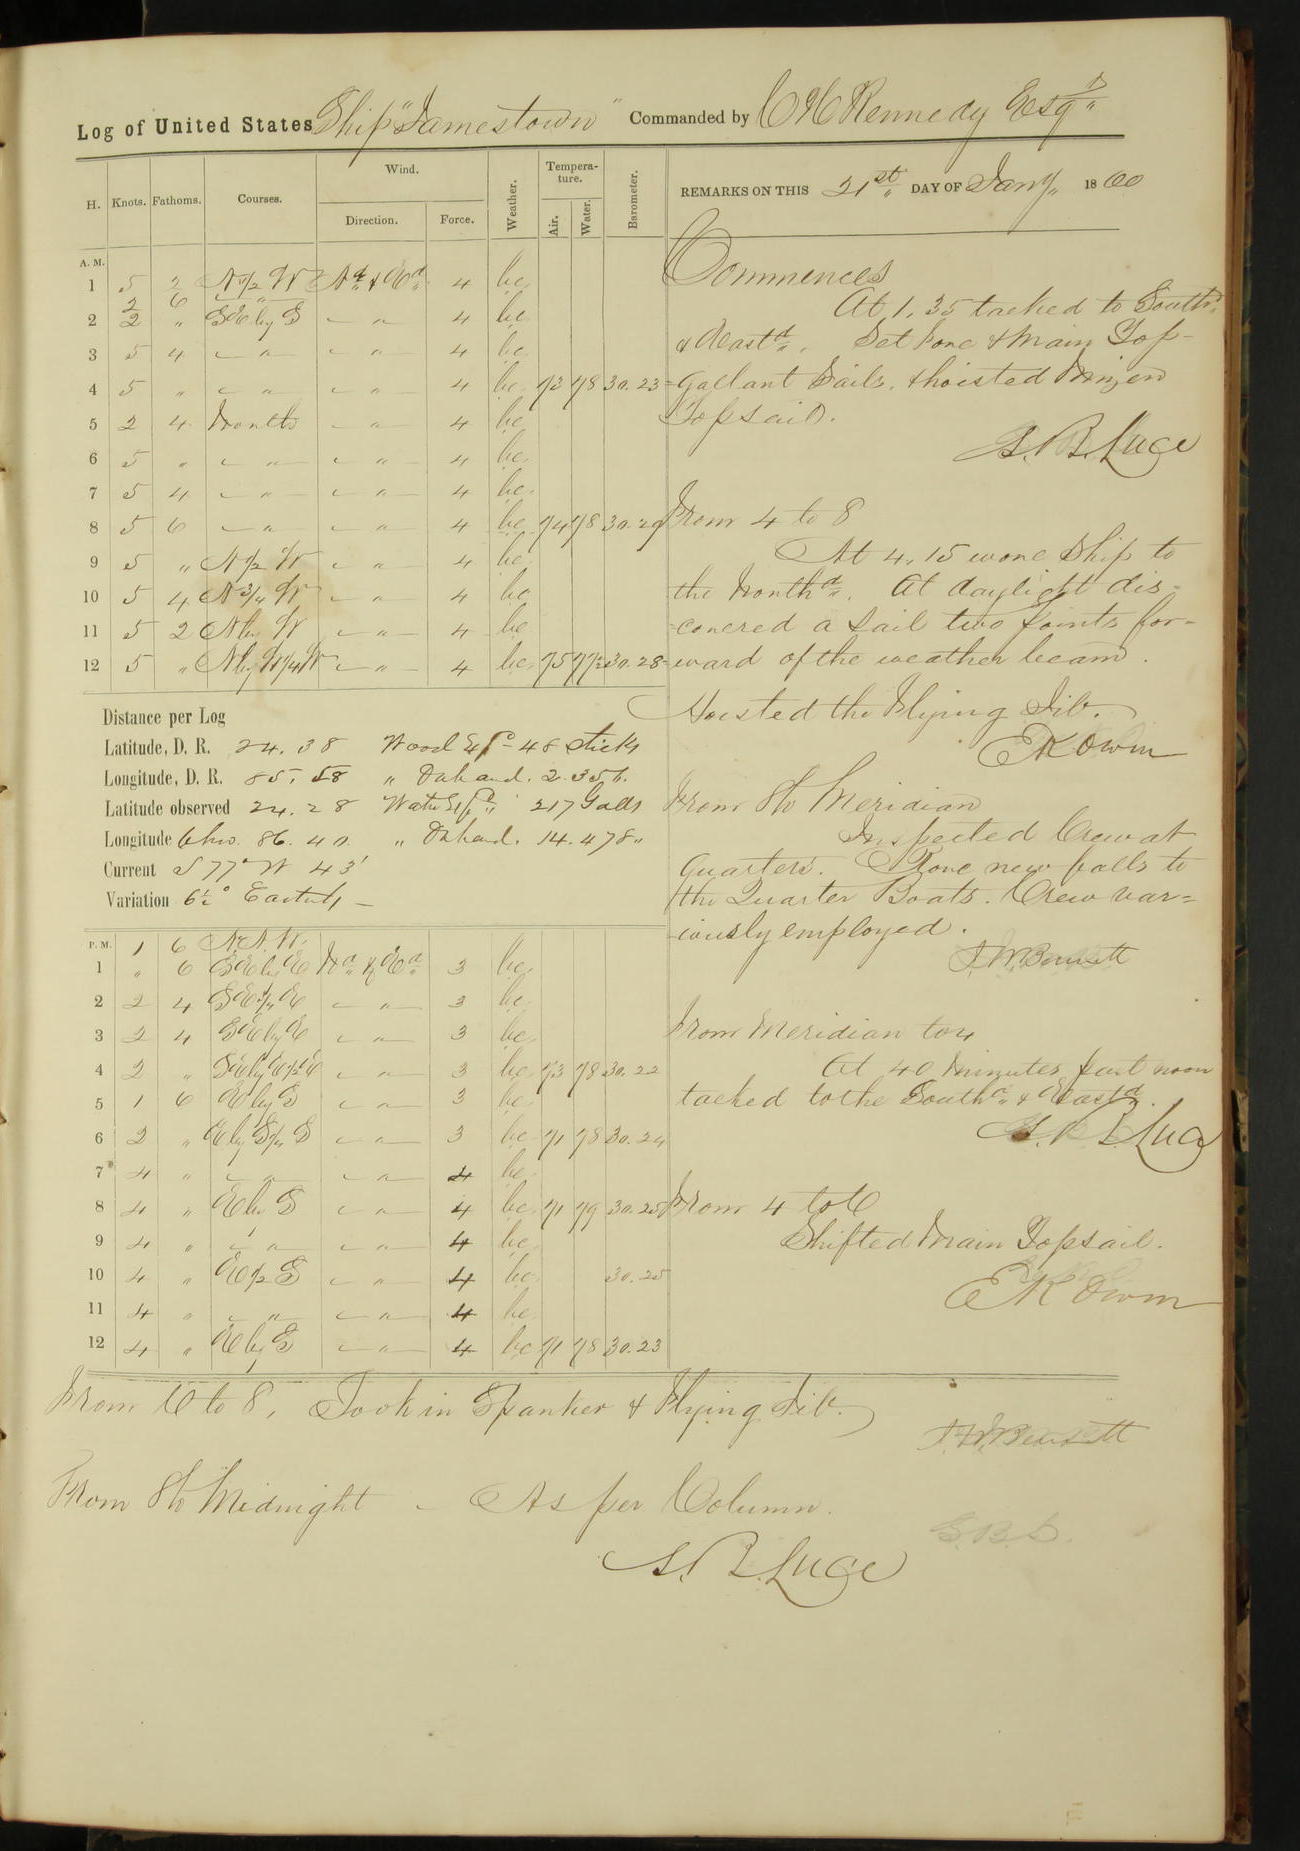 Log of United States Ship "Jamestown" Commanded by C H Kennedy Esqr
H. Knots. Fathoms. Courses. Wind. Direction. Force. Weather. Tempera-ture. Air. Water. Barometer.
REMARKS ON THIS 21st DAY OF Jany, 1860
A. M.
1 5 2 N 1/2 W Nd & Ed 4 bc
2 6 "
2 2 " SE by S — " — 4 bc
3 5 4 — " — — " — 4 bc
4 5 " — " — — " — 4 bc 73 78 30.23
5 2 4 North — " — 4 bc
6 5 " — " — — " — 4 bc
7 5 4 — " — — " — 4 bc
8 5 6 — " — — " — 4 bc 74 78 30.29
9 5 " N 1/2 W — " — 4 bc
10 5 4 N 3/4 W — " — 4 bc
11 5 2 N by W — " — 4 bc
12 5 " N by W 1/4 W — " — 4 bc 75 77 1/2 30.28
Commences
At 1.35 tacked to Southd
& Eastd. Set Fore & Main Top-
Gallant Sails, & hoisted Mizen
Topsail.
S. B. Luce
From 4 to 8
At 4.15 wore Ship to
the Northd. At daylight dis-
covered a Sail two points for-
ward of the weather beam.
Hoisted the Flying Jib.
E K Owen
Distance per Log
Latitude, D. R. 24.38 Wood Expd - 48 Sticks
Longitude, D. R. 85.58 " On hand. 2.356.
Latitude observed 24.28 Water Expd " 217 Galls
Longitude Chro. 86.40. " On hand. 14.478 "
Current S 77° W 43'
Variation 6 1/2° Easterly —
From 8 to Meridian
Inspected Crew at
Quarters. Rove new falls to
the Quarter Boats. Crew var=
iously employed.
P. M. 1 6 N.N.W.
1 " 6 SE by E Nd & Ed 3 bc
2 2 4 SE 3/4 E — " — 3 bc
3 2 4 SE by E — " — 3 bc
4 2 " SE by E 1/2 E — " — 3 bc 73 78 30.22
5 1 6 E by S — " — 3 bc
6 2 " E by S 1/4 S — " — 3 bc 71 78 30.24
7 4 " — " — — " — 4 bc
8 4 " E by S — " — 4 bc 71 79 30.25
9 4 " — " — — " — 4 bc
10 4 " E 1/2 S — " — 4 bc 30.25
11 4 " — " — — " — 4 bc
12 4 " E by S — " — 4 bc 71 78 30.23
From Meridian to 4
At 40 minutes past noon
tacked to the Southd & Eastd.
S. B. Luce
From 4 to 6
Shifted Main Topsail.
E K Owen
From 6 to 8, Took in Spanker & Flying Jib.
From 8 to Midnight - As per Column.
S. B. L.
S. B. Luce